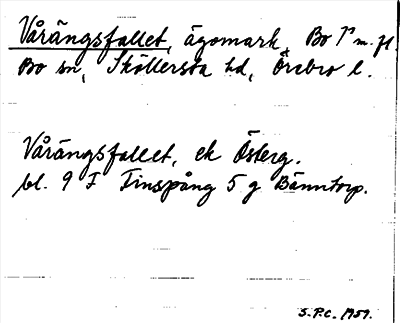 Vårängsfallet, ägomark, Bo 1⁵ m. fl.
Bo sn, Sköllersta hd, Örebro l.
Vårängsfallet, ek Österg.
bl. 9 F Finspång 5 g Bänntorp.
S.P.C. 1959.